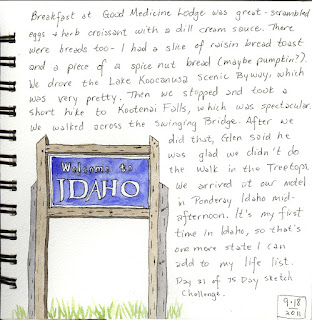 Breakfast at Good Medicine Lodge was great - scrambled
eggs + herb croissant with a dill cream sauce. There
were breads too - I had a slice of raisin bread toast
and a piece of a spice nut bread (maybe pumpkin?).
We drove the Lake Koocanusa Scenic Byway, which
was very pretty. Then we stopped and took a
short hike to Kootenai Falls, which was spectacular.
We walked across the Swinging Bridge. After we
did that, Glen said he
was glad we didn't do
the Walk in the Treetops.
We arrived at our motel
in Ponderay Idaho mid-
afternoon. It's my first
time in Idaho, so that's
one more state I can
add to my life list.
Day 31 of 75 Day Sketch
Challenge.
Welcome to
IDAHO
9.18
2011